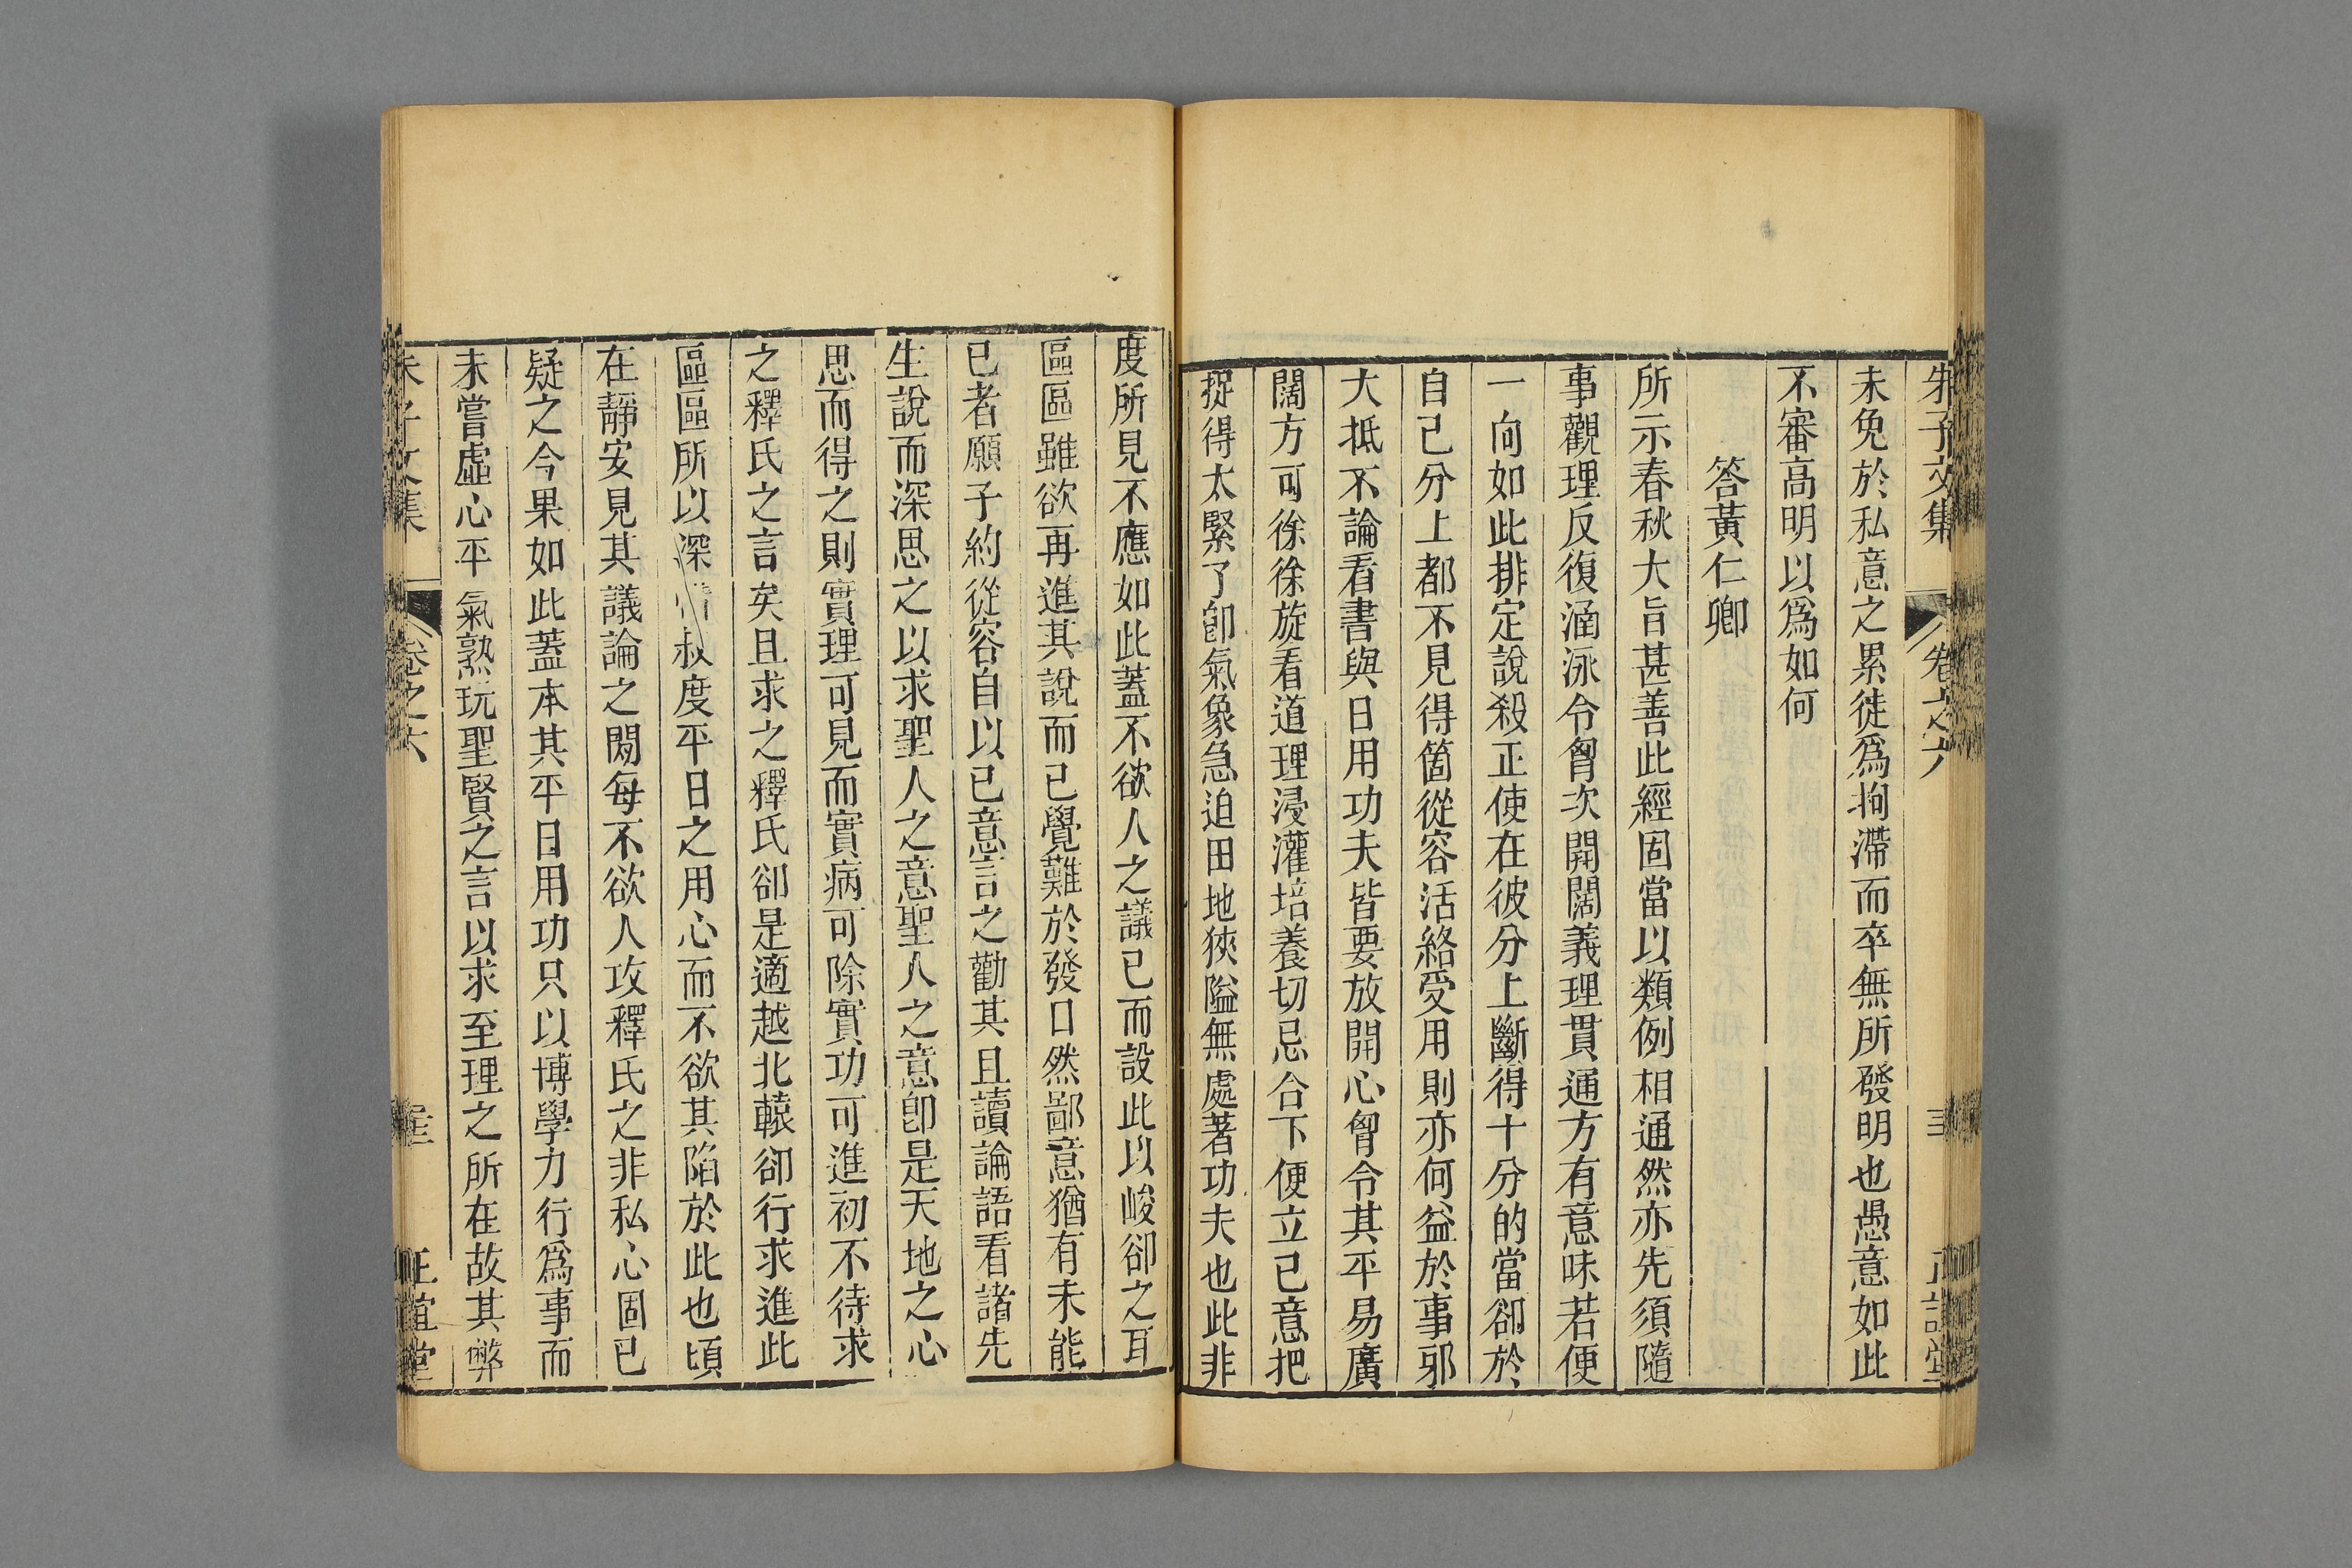 朱子文集 卷之六 三 正誼堂
未免於私意之累徒爲拘滯而卒無所發明也愚意如此
不審高明以爲如何
答黃仁卿
所示春秋大旨甚善此經固當以類例相通然亦先須隨
事觀理反復涵泳令胷次開闊義理貫通方有意味若便
一向如此排定說殺正使在彼分上斷得十分的當卻於
自己分上都不見得箇從容活絡受用則亦何益於事邪
大抵不論看書與日用功夫皆要放開心胷令其平易廣
闊方可徐徐旋看道理浸灌培養切忌合下便立己意把
捉得太緊了卽氣象急迫田地狹隘無處著功夫也此非
度所見不應如此蓋不欲人之議已而設此以峻卻之耳
區區雖欲再進其說而已覺難於發口然鄙意猶有未能
已者願子約從容自以已意言之勸其且讀論語看諸先
生說而深思之以求聖人之意聖人之意卽是天地之心
思而得之則實理可見而實病可除實功可進初不待求
之釋氏之言矣且求之釋氏卻是適越北轅卻行求進此
區區所以深惜叔度平日之用心而不欲其陷於此也頃
在靜安見其議論之閒每不欲人攻釋氏之非私心固已
疑之今果如此蓋本其平日用功只以博學力行爲事而
未嘗虛心平氣熟玩聖賢之言以求至理之所在故其弊
朱子文集 卷之六 正誼堂